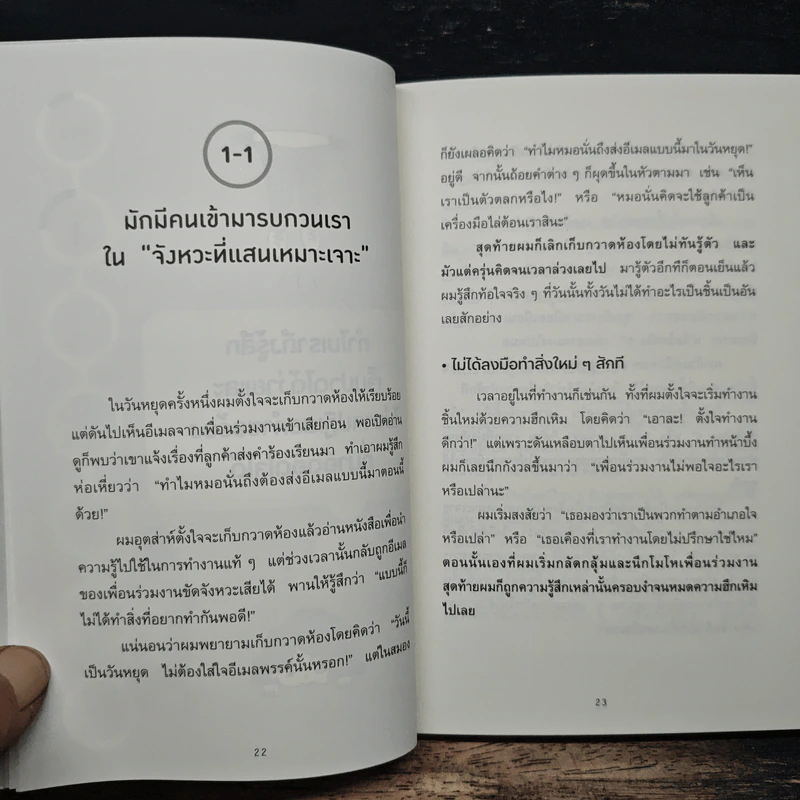 1-1
มักมีคนเข้ามารบกวนเรา
ใน "จังหวะที่แสนเหมาะเจาะ"
ในวันหยุดครั้งหนึ่งผมตั้งใจจะเก็บกวาดห้องให้เรียบร้อย
แต่ดันไปเห็นอีเมลจากเพื่อนร่วมงานเข้าเสียก่อน พอเปิดอ่าน
ดูก็พบว่าเขาแจ้งเรื่องที่ลูกค้าส่งคำร้องเรียนมา ทำเอาผมรู้สึก
ห่อเหี่ยวว่า "ทำไมหมอนั่นถึงต้องส่งอีเมลแบบนี้มาตอนนี้
ด้วย!"
ผมอุตส่าห์ตั้งใจจะเก็บกวาดห้องแล้วอ่านหนังสือเพื่อนำ
ความรู้ไปใช้ในการทำงานแท้ ๆ แต่ช่วงเวลานั้นกลับถูกอีเมล
ของเพื่อนร่วมงานขัดจังหวะเสียได้ พานให้รู้สึกว่า "แบบนี้ก็
ไม่ได้ทำสิ่งที่อยากทำกันพอดี!"
แน่นอนว่าผมพยายามเก็บกวาดห้องโดยคิดว่า "วันนี้
เป็นวันหยุด ไม่ต้องใส่ใจอีเมลพรรค์นั้นหรอก!" แต่ในสมอง
22
ก็ยังเผลอคิดว่า "ทำไมหมอนั่นถึงส่งอีเมลแบบนี้มาในวันหยุด!"
อยู่ดี จากนั้นถ้อยคำต่าง ๆ ก็ผุดขึ้นในหัวตามมา เช่น "เห็น
เราเป็นตัวตลกหรือไง!" หรือ "หมอนั่นคิดจะใช้ลูกค้าเป็น
เครื่องมือไล่ต้อนเราสินะ"
สุดท้ายผมก็เลิกเก็บกวาดห้องโดยไม่ทันรู้ตัว และ
มัวแต่ครุ่นคิดจนเวลาล่วงเลยไป มารู้ตัวอีกทีก็ตอนเย็นแล้ว
ผมรู้สึกท้อใจจริง ๆ ที่วันนั้นทั้งวันไม่ได้ทำอะไรเป็นชิ้นเป็นอัน
เลยสักอย่าง
• ไม่ได้ลงมือทำสิ่งใหม่ ๆ สักที
เวลาอยู่ในที่ทำงานก็เช่นกัน ทั้งที่ผมตั้งใจจะเริ่มทำงาน
ชิ้นใหม่ด้วยความฮึกเหิม โดยคิดว่า "เอาละ! ตั้งใจทำงาน
ดีกว่า!" แต่เพราะดันเหลือบตาไปเห็นเพื่อนร่วมงานทำหน้าบึ้ง
ผมก็เลยนึกกังวลขึ้นมาว่า "เพื่อนร่วมงานไม่พอใจอะไรเรา
หรือเปล่านะ"
ผมเริ่มสงสัยว่า "เธอมองว่าเราเป็นพวกทำตามอำเภอใจ
หรือเปล่า" หรือ "เธอเคืองที่เราทำงานโดยไม่ปรึกษาใช่ไหม"
ตอนนั้นเองที่ผมเริ่มกลัดกลุ้มและนึกโมโหเพื่อนร่วมงาน
สุดท้ายผมก็ถูกความรู้สึกเหล่านั้นครอบงำจนหมดความฮึกเหิม
ไปเลย
23